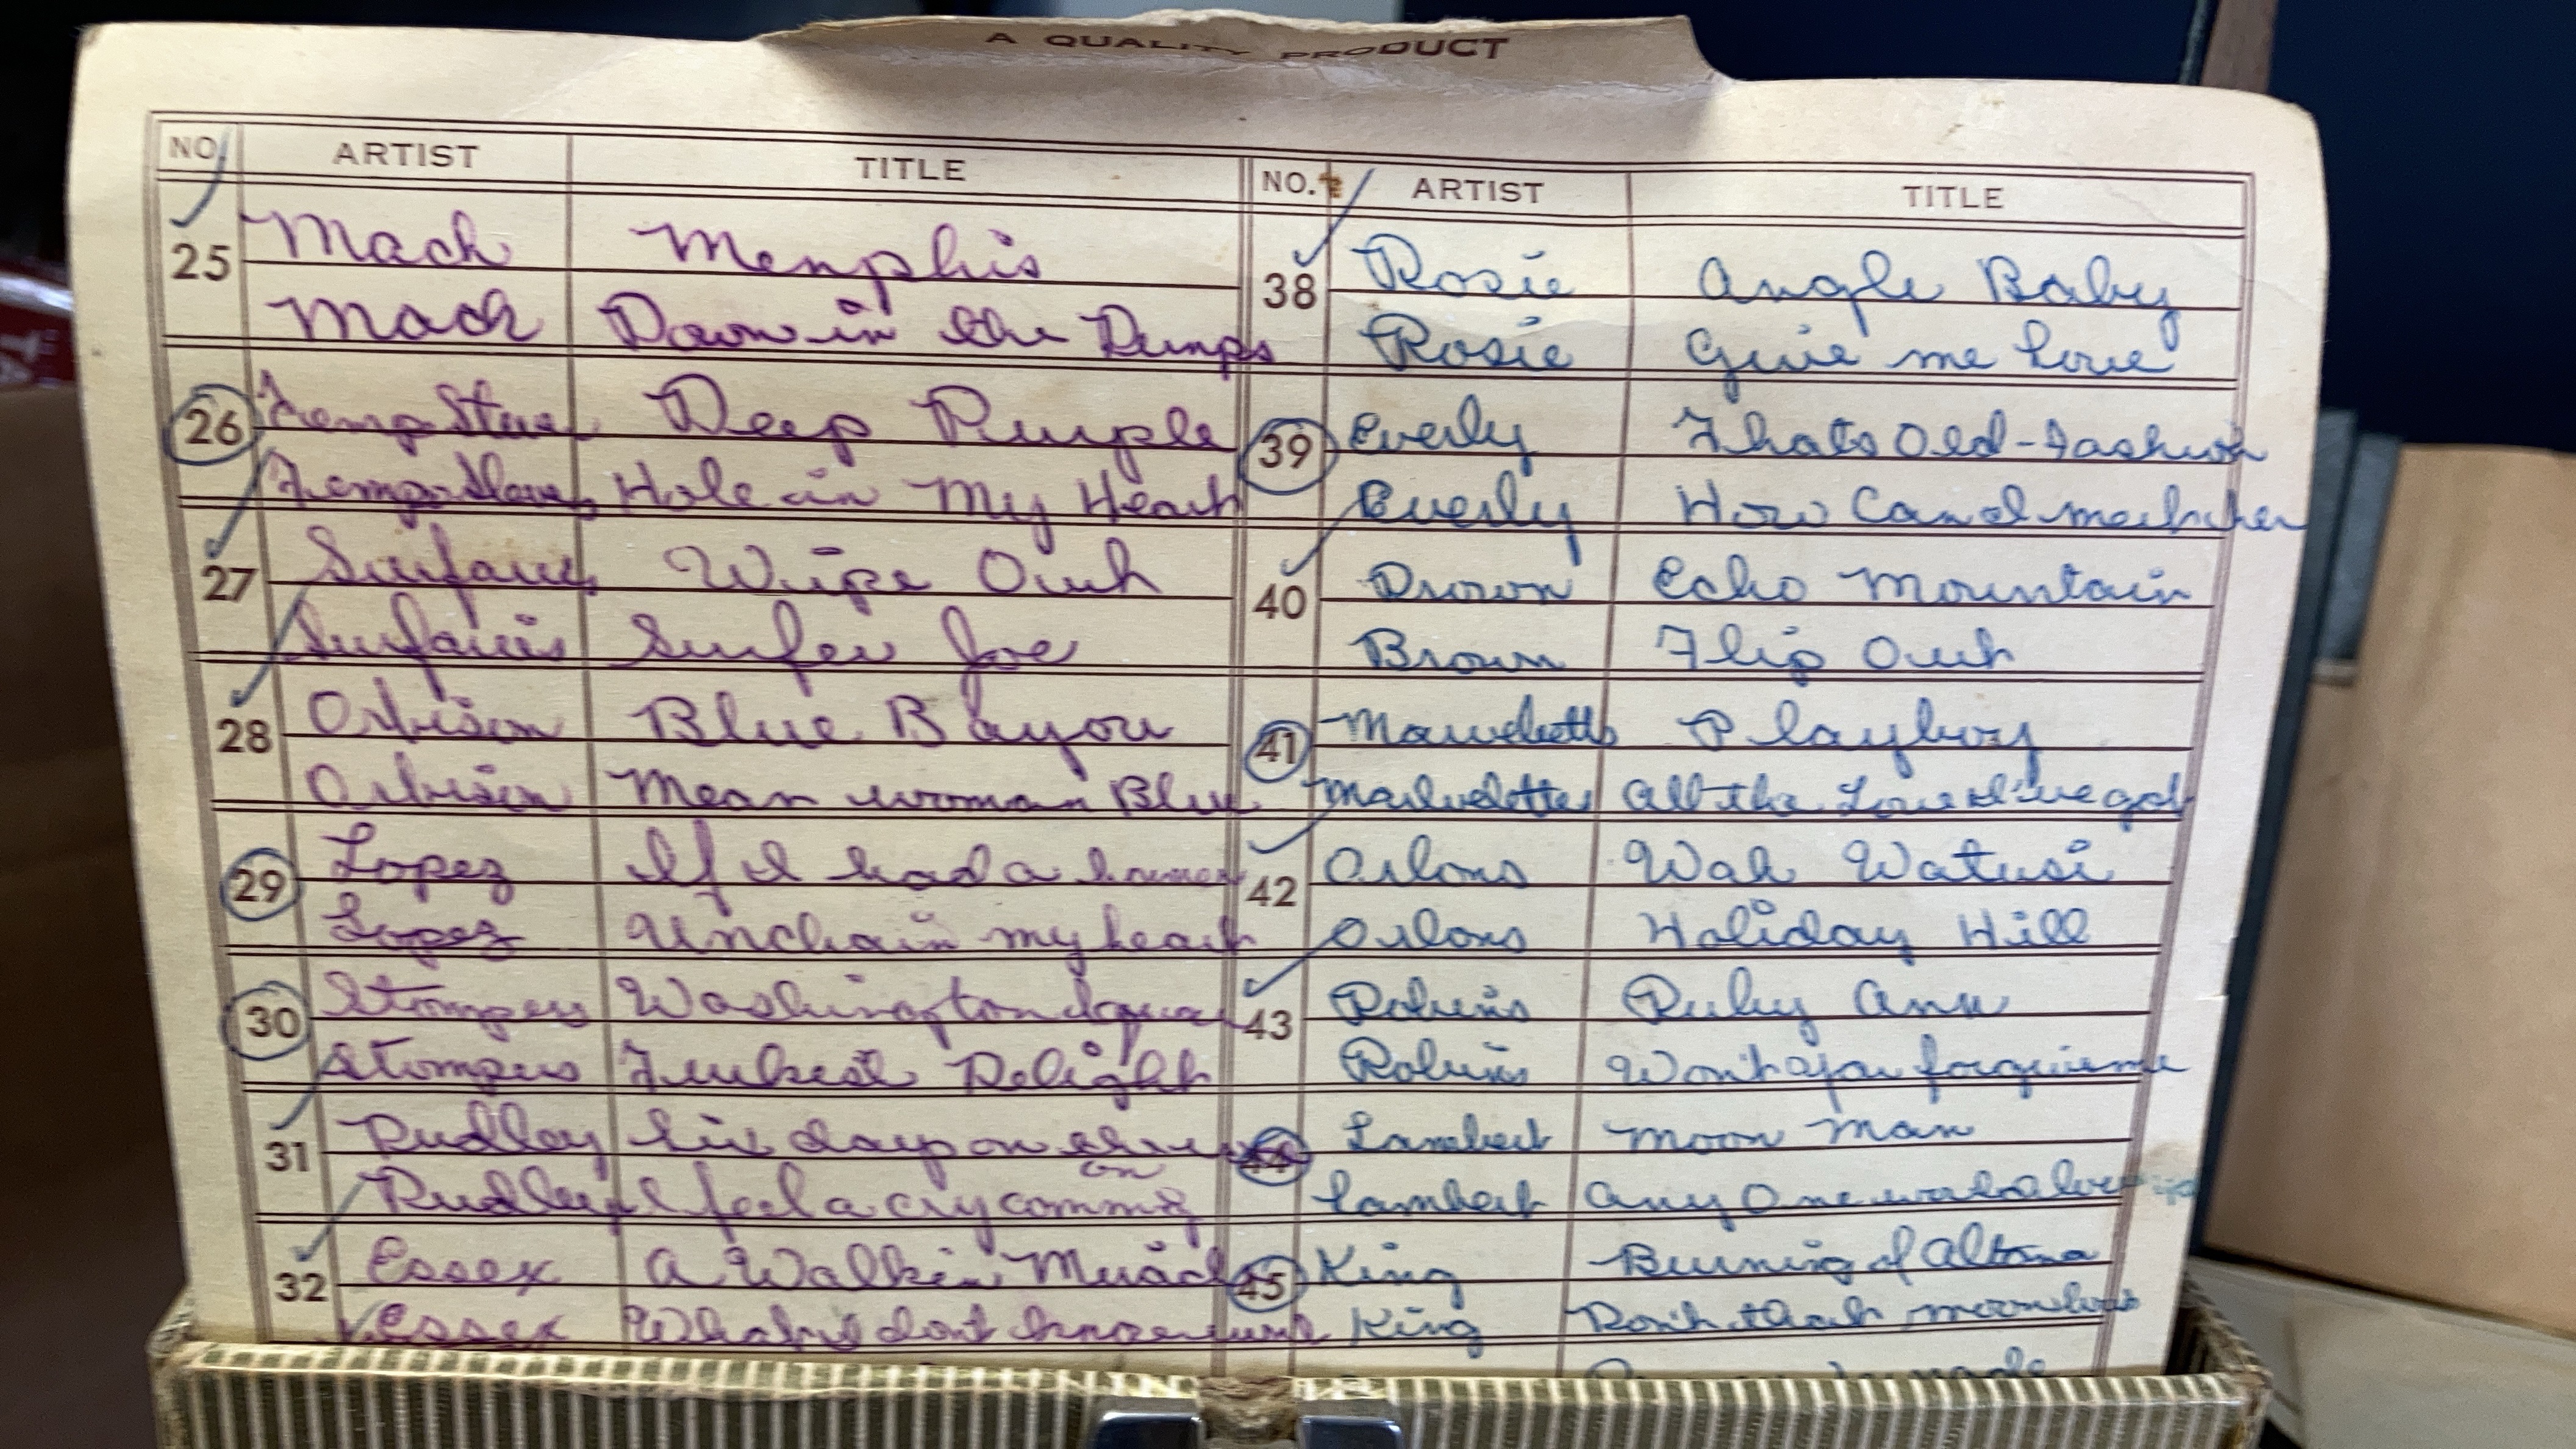 A QUALITY PRODUCT
NO. ARTIST TITLE
25 Mack Memphis
Mack Down in the Dumps
26 Temp Stevens Deep Purple
Temp Stevens Hole in My Heart
27 Surfaris Wipe Out
Surfaris Surfer Joe
28 Orbison Blue Bayou
Orbison Mean woman Blue
29 Lopez If I had a hammer
Lopez Unchain my heart
30 Stompers Washington Square
Stompers Turkish Delight
31 Dudley Six days on
on
Dudley I feel a cry coming
32 Essex A Walkin Miracle
Essex What I don't know
NO. ARTIST TITLE
38 Rosie Angle Baby
Rosie Give me love
39 Everly Thats Old-Fashion
Everly How Can I meet her
40 Drown Echo Mountain
Brown Flip Out
41 Marveletts Playboy
Marvelettes All the Love I've got
42 Orlons Wah Watusi
Orlons Holiday Hill
43 Robins Ruby Ann
Robins Won't you forgive me
44 Lambert Moon Man
Lambert Any One
45 King Burning of Altona
King Don't that moon